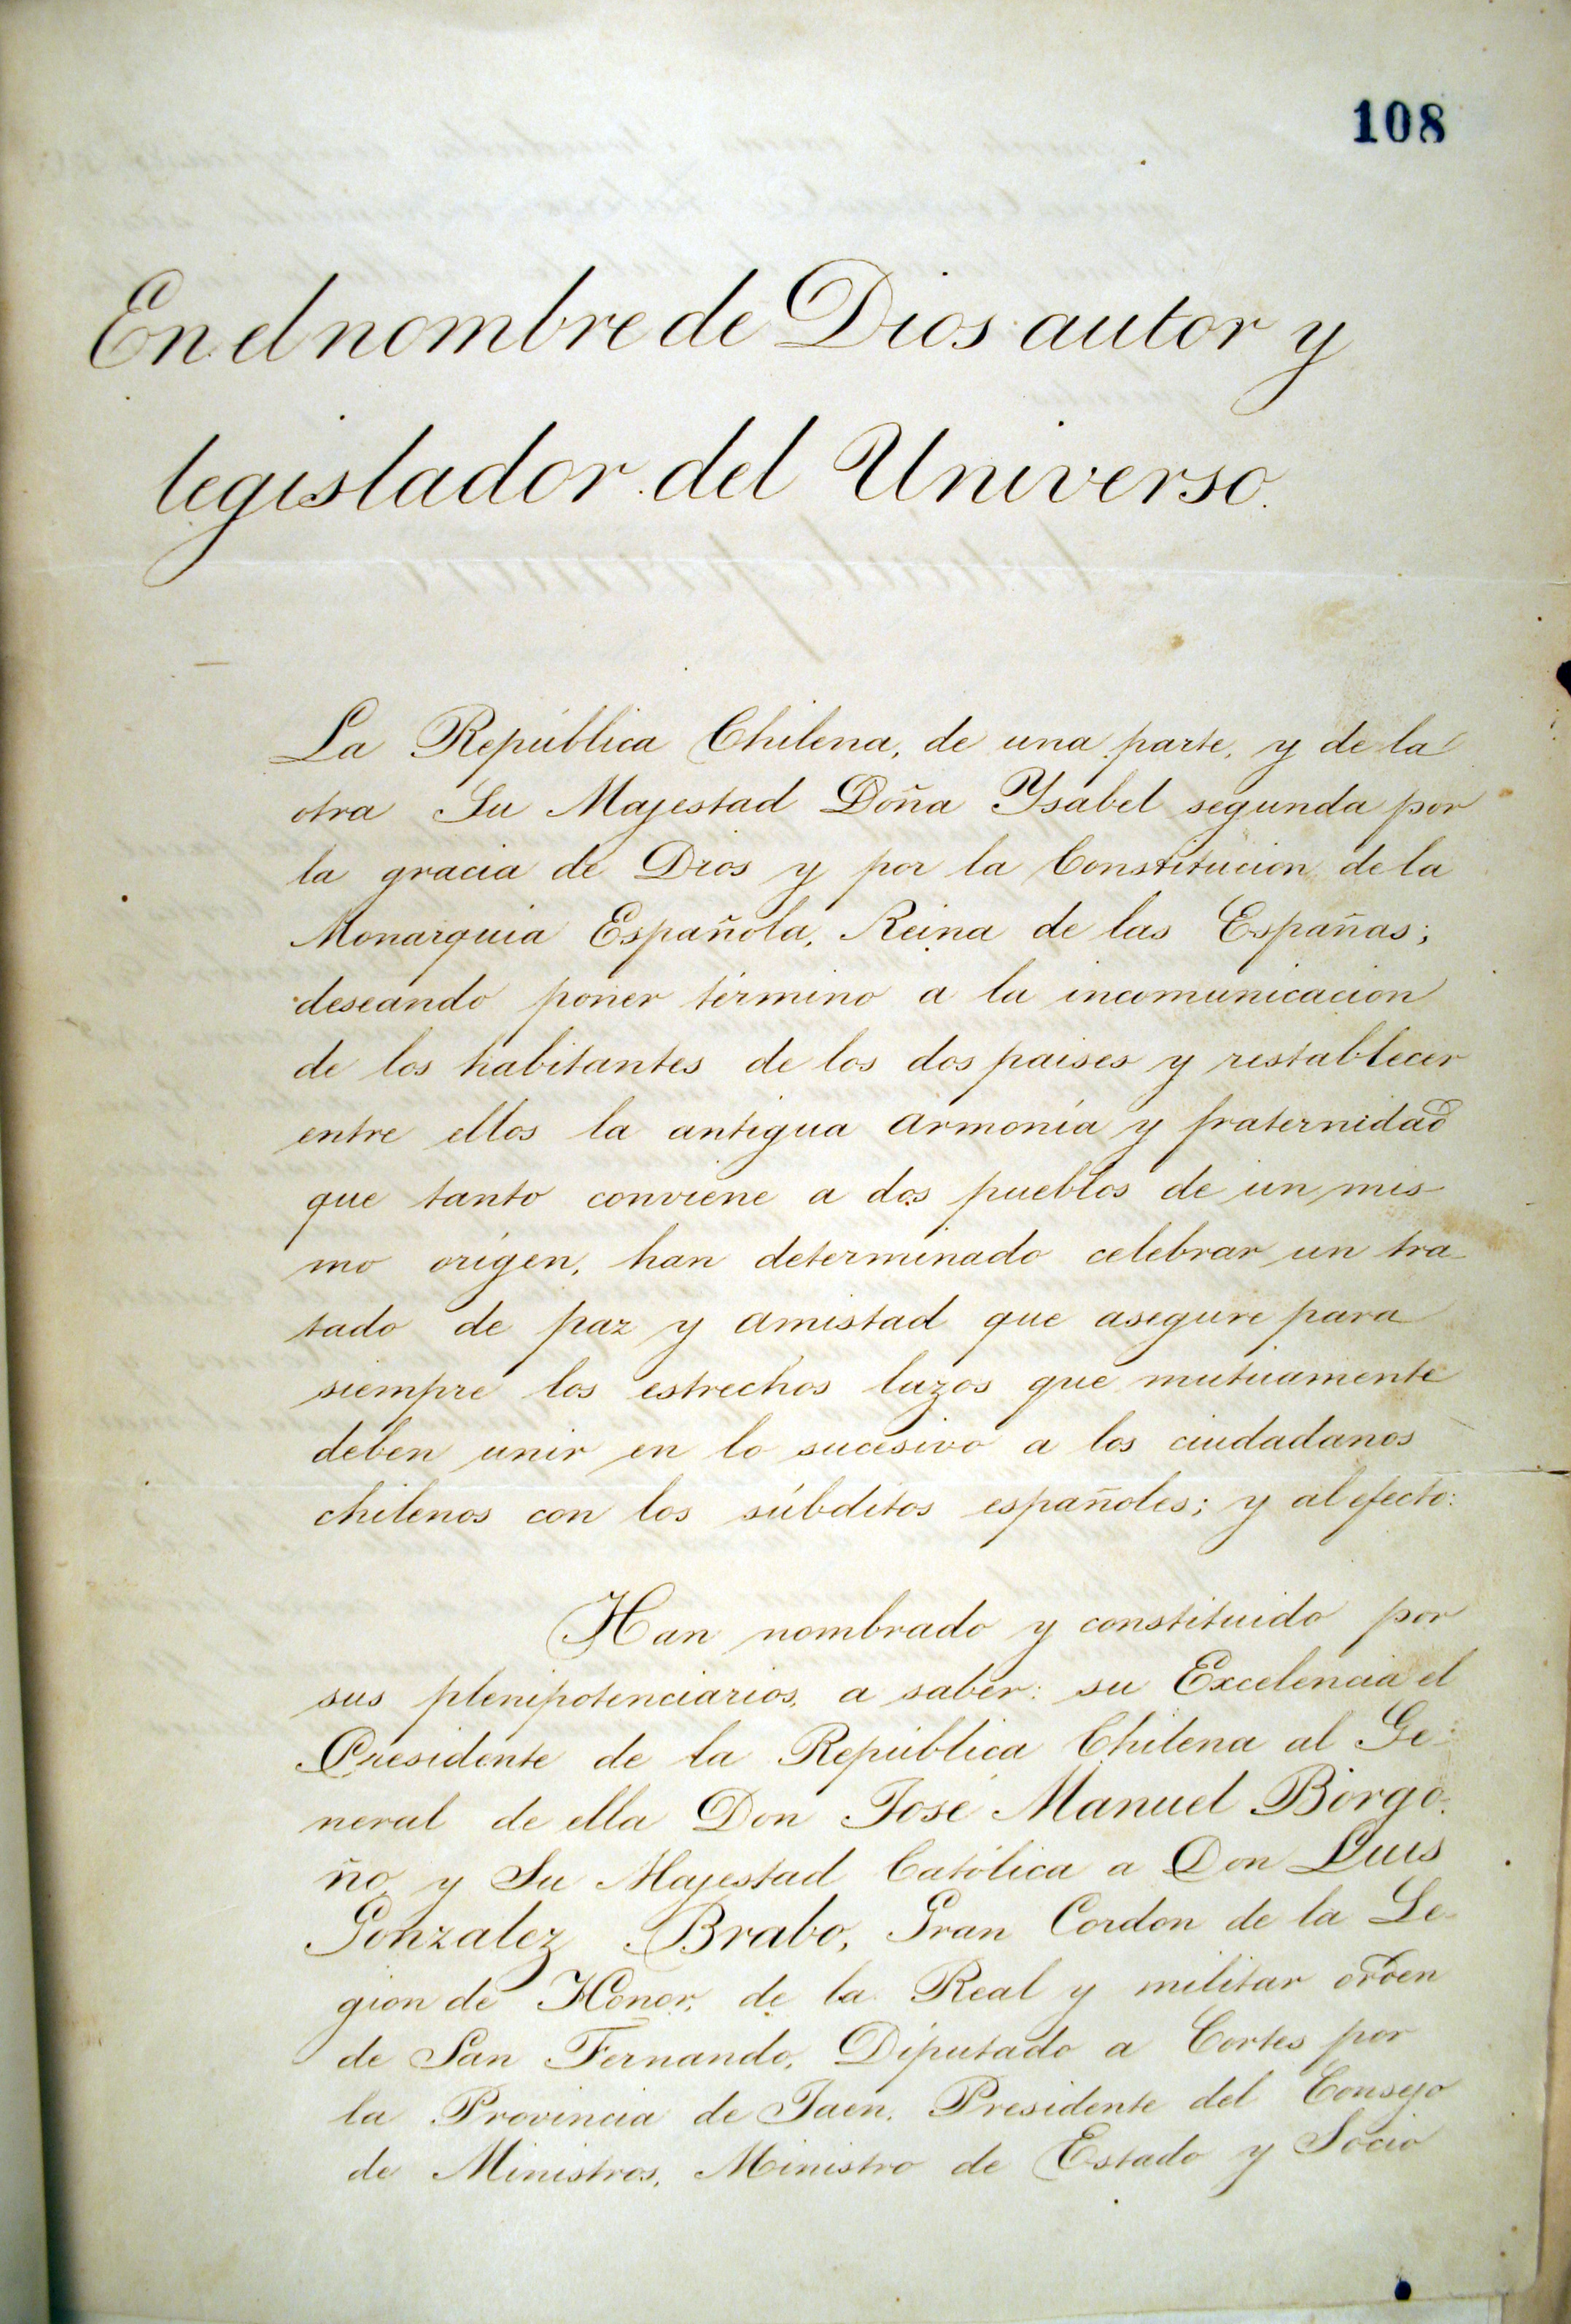 108
En el nombre de Dios autor y
legislador del Universo.
La República Chilena, de una parte, y de la
otra Su Majestad Doña Ysabel segunda por
la gracia de Dios y por la Constitucion de la
Monarquia Española, Reina de las Españas;
deseando poner término a la incomunicacion
de los habitantes de los dos paises y restablecer
entre ellos la antigua armonía y fraternidad
que tanto conviene a dos pueblos de un mis-
mo orígen, han determinado celebrar un tra-
tado de paz y amistad que asegure para
siempre los estrechos lazos que mutuamente
deben unir en lo sucesivo a los ciudadanos
chilenos con los súbditos españoles; y al efecto:
Han nombrado y constituido por
sus plenipotenciarios, a saber: su Excelencia el
Presidente de la República Chilena al Ge-
neral de ella Don José Manuel Borgo-
ño y Su Majestad Católica a Don Luis
Gonzalez Brabo, Gran Cordon de la Le-
gion de Honor, de la Real y militar orden
de San Fernando, Diputado a Cortes por
la Provincia de Jaen, Presidente del Consejo
de Ministros, Ministro de Estado y Socio